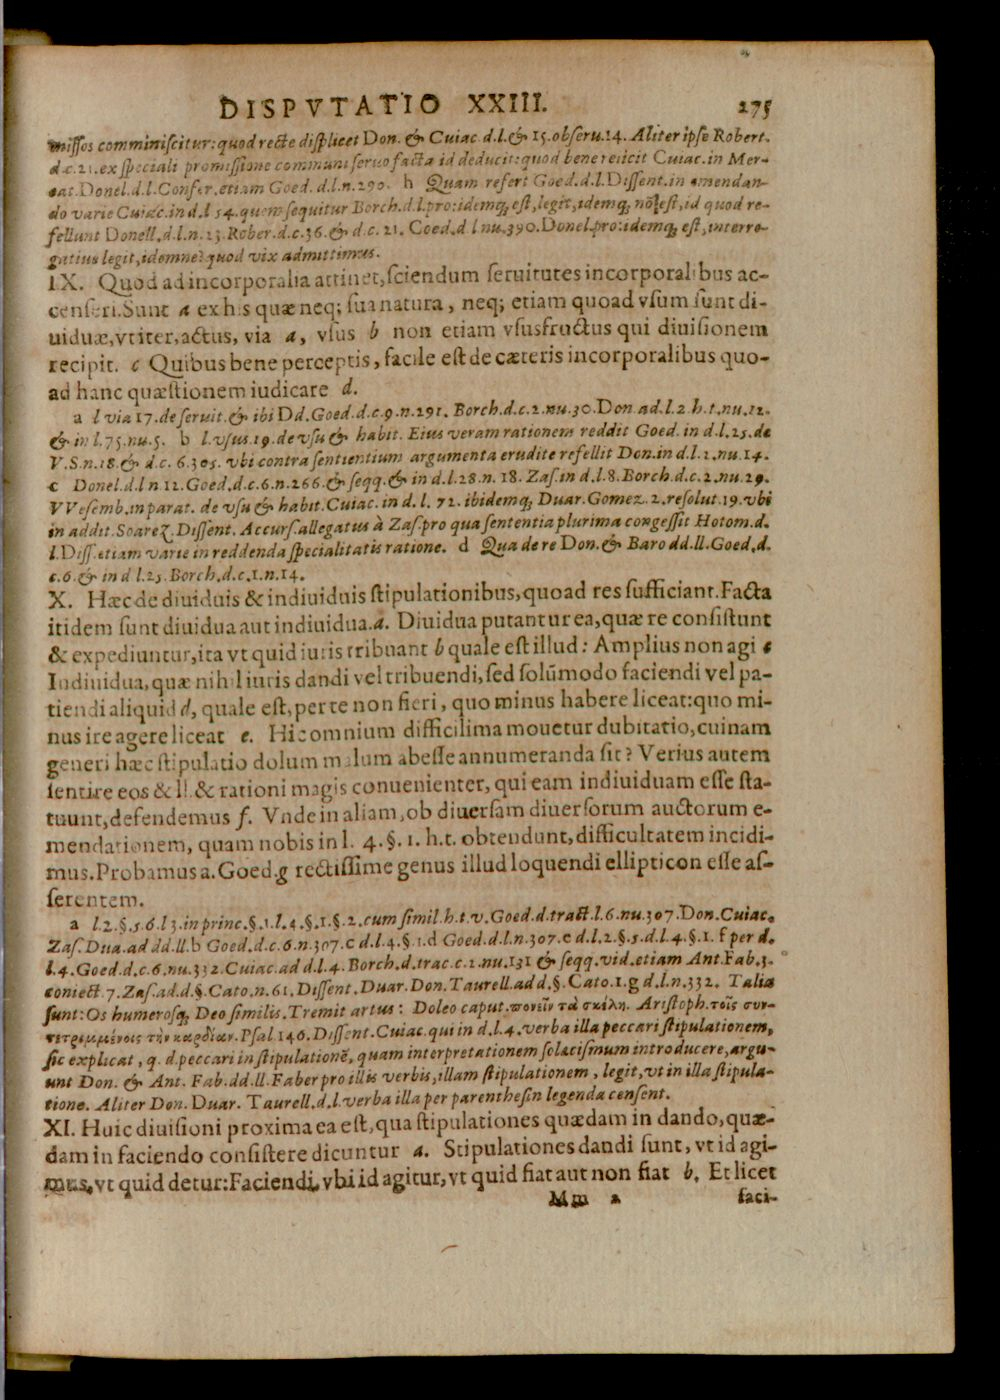 DISPVTATIO XXIII. 275
missos comminiscitur: quod recte displicet Don. & Cuiac. d.l. & 15. obseru. 14. Aliter ipse Robert.
d.c. 21. ex speciali promissione communi seruo facta id deducit: quod bene reiicit Cuiac. in Mer-
cat. Donel. d.l. Confer. etiam Goed. d.l.n. 290. h Quam refert Goed. d.l. Dissent. in emendan-
do varie Cuiac. in d.l 54. quem sequitur Borch. d.l. pro: idemq; est, legit, idemq; nō est, id quod re-
fellunt Donell. d.l.n. 23. Rober. d.c. 36. & d.c. 21. Goed. d l nu. 390. Donel. pro: idemq; est, interro-
gatius legit, idemne? quod vix admittimus.
IX. Quod ad incorporalia attinet, sciendum seruitutes incorporalibus ac-
censeri. Sunt a ex his quæ neq; sua natura, neq; etiam quoad vsum sunt di-
uiduæ, vt iter, actus, via a, vsus b non etiam vsusfructus qui diuisionem
recipit. c Quibus bene perceptis, facile est de cæteris incorporalibus quo-
ad hanc quæstionem iudicare d.
a l via 17. de seruit. & ibi Dd. Goed. d.c. 9. n. 291. Borch. d.c. 2. nu. 30. Don. ad. l. 2. h.t. nu. 12.
& in l. 75. nu. 5. b l. vsus. 19. de vsu & habit. Eius veram rationem reddit Goed. in d.l. 25. de
V.S. n. 18. & d.c. 6. 305. vbi contra sentientium argumenta erudite refellit Don. in d.l. 2. nu. 14.
c Donel. d.l n. 12. Goed. d.c. 6. n. 266. & seqq. & in d.l. 28. n. 18. Zas. in d.l. 8. Borch. d.c. 2. nu. 29.
VVesemb. in parat. de vsu & habit. Cuiac. in d. l. 72. ibidemq; Duar. Gomez. 2. resolut. 19. vbi
in addit. Soarez. Dissent. Accurs. allegatus à Zas. pro qua sententia plurima congessit Hotom. d.
l. Diss. etiam varie in reddenda specialitatis ratione. d Qua de re Don. & Baro dd. ll. Goed. d.
c. 6. & in d l. 25. Borch. d.c. 1. n. 14.
X. Hæc de diuiduis & indiuiduis stipulationibus, quoad res sufficiant. Facta
itidem sunt diuidua aut indiuidua. a. Diuidua putantur ea, quæ re consistunt
& expediuntur, ita vt quid iuris tribuant b quale est illud: Amplius non agi c
Indiuidua, quæ nihil iuris dandi vel tribuendi, sed solūmodo faciendi vel pa-
tiendi aliquid d, quale est, per te non fieri, quo minus habere liceat: quo mi-
nus ire agere liceat e. Hic omnium difficilima mouetur dubitatio, cuinam
generi hæc stipulatio dolum malum abesse annumeranda sit? Verius autem
sentire eos & ll. & rationi magis conuenienter, qui eam indiuiduam esse sta-
tuunt, defendemus f. Vnde in aliam, ob diuersam diuersorum auctorum e-
mendationem, quam nobis in l. 4. §. 1. h.t. obtendunt, difficultatem incidi-
mus. Probamus a. Goed. g rectissime genus illud loquendi ellipticon esse as-
serentem.
a l. 2. §. 5. 6. l 3. in princ. §. 1. l. 4. §. 1. §. 2. cum simil. h.t. v. Goed. d. tract. l. 6. nu. 307. Don. Cuiac.
Zas. Dua. ad dd. ll. b Goed. d.c. 6. n. 307. c d.l. 4. §. 1. d Goed. d.l. n. 307. e d.l. 2. §. 5. d.l. 4. §. 1. f per d.
l. 4. Goed. d.c. 6. nu. 332. Cuiac. ad d.l. 4. Borch. d. trac. c. 2. nu. 131 & seqq. vid. etiam Ant. Fab. 3.
coniect. 7. Zas. ad. d. §. Cato. n. 61. Dissent. Duar. Don. Taurell. ad d. §. Cato. 1. g d.l. n. 332. Talia
sunt: Os humerosq; Deo similis. Tremit artus: Doleo caput. πονεῖν τὰ σκέλη. Aristoph. τοῖς συν-
τετριμμένοις τὴν καρδίαν. Psal 146. Dissent. Cuiac. qui in d.l. 4. verba illa peccari stipulationem,
sic explicat, q. d. peccari in stipulationē, quam interpretationem solœcismum introducere, argu-
unt Don. & Ant. Fab. dd. ll. Faber pro illis verbis, illam stipulationem, legit, vt in illa stipula-
tione. Aliter Don. Duar. Taurell. d.l. verba illa per parenthesin legenda censent.
XI. Huic diuisioni proxima ea est, qua stipulationes quædam in dando, quæ-
dam in faciendo consistere dicuntur a. Stipulationes dandi sunt, vt id agi-
mus, vt quid detur: Faciendi, vbi id agitur, vt quid fiat aut non fiat b. Et licet
Mm 2 faci-